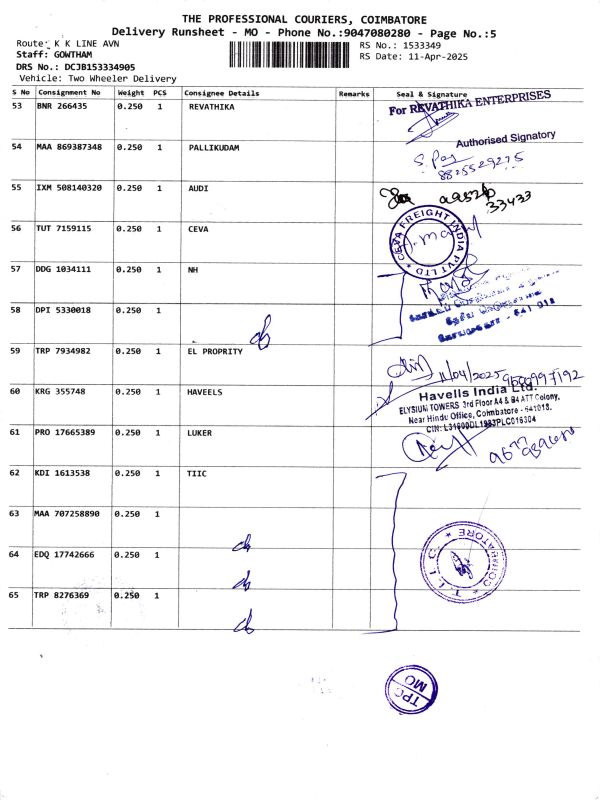 THE PROFESSIONAL COURIERS, COIMBATORE
Delivery Runsheet - MO - Phone No.:9047080280 - Page No.:5
Route: K K LINE AVN
RS No.: 1533349
Staff: GOWTHAM
RS Date: 11-Apr-2025
DRS No.: DCJB153334905
Vehicle: Two Wheeler Delivery
S No Consignment No Weight PCS Consignee Details Remarks Seal & Signature
53 BNR 266435 0.250 1 REVATHIKA
For REVATHIKA ENTERPRISES
Authorised Signatory
54 MAA 869387348 0.250 1 PALLIKUDAM
55 IXM 508140320 0.250 1 AUDI
33433
56 TUT 7159115 0.250 1 CEVA
CEVA FREIGHT INDIA PVT LTD
57 DDG 1034111 0.250 1 NH
58 DPI 5330018 0.250 1
641 018
59 TRP 7934982 0.250 1 EL PROPRITY
11/04/2025
60 KRG 355748 0.250 1 HAVEELS
Havells India Ltd.
ELYSIUM TOWERS 3rd Floor A4 & B4 ATT Colony,
Near Hindu Office, Coimbatore - 641018.
CIN: L31900DL1983PLC016304
61 PRO 17665389 0.250 1 LUKER
62 KDI 1613538 0.250 1 TIIC
63 MAA 707258890 0.250 1
64 EDQ 17742666 0.250 1
T. I. I. C. COIMBATORE
65 TRP 8276369 0.250 1
TPC
MO